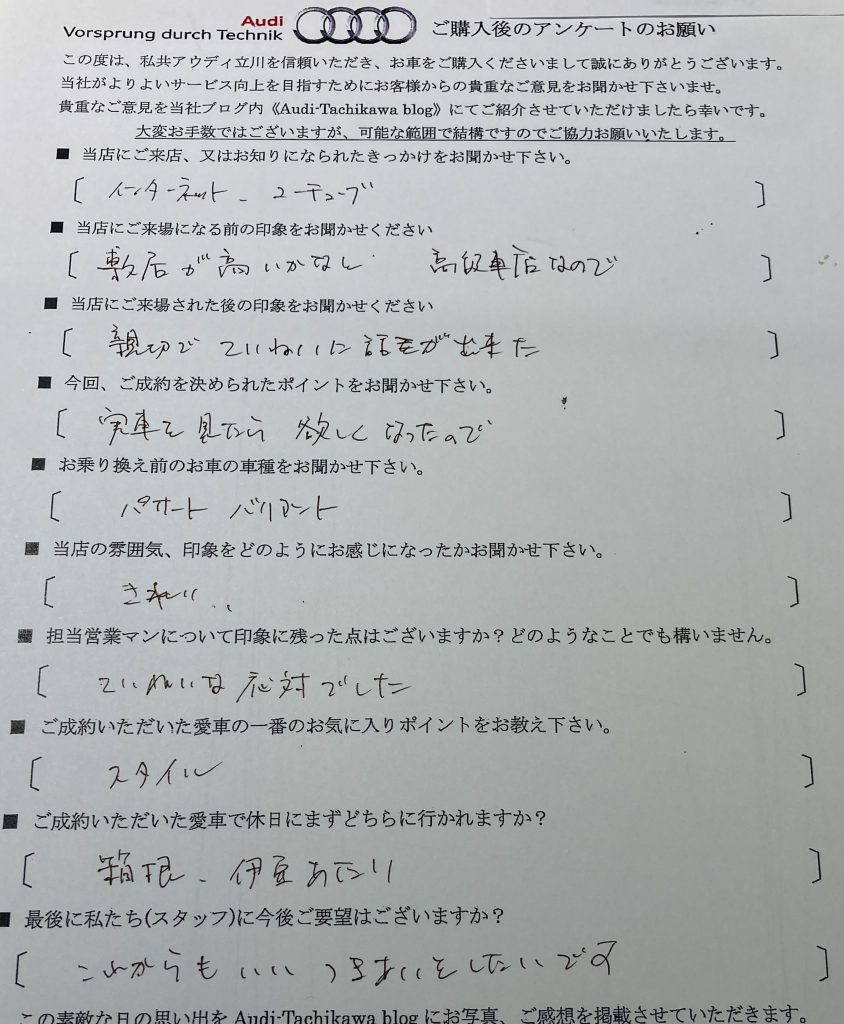 Audi
Vorsprung durch Technik
ご購入後のアンケートのお願い
この度は、私共アウディ立川を信頼いただき、お車をご購入くださいまして誠にありがとうございます。
当社がよりよいサービス向上を目指すためにお客様からの貴重なご意見をお聞かせ下さいませ。
貴重なご意見を当社ブログ内《Audi-Tachikawa blog》にてご紹介させていただけましたら幸いです。
大変お手数ではございますが、可能な範囲で結構ですのでご協力お願いいたします。
■ 当店にご来店、又はお知りになられたきっかけをお聞かせ下さい。
[ インターネット、ユーチューブ ]
■ 当店にご来場になる前の印象をお聞かせください
[ 敷居が高いかなと 高級車店なので ]
■ 当店にご来場された後の印象をお聞かせください
[ 親切でていねいに話が出来た ]
■ 今回、ご成約を決められたポイントをお聞かせ下さい。
[ 実車を見たら欲しくなったので ]
■ お乗り換え前のお車の車種をお聞かせ下さい。
[ パサート バリアント ]
■ 当店の雰囲気、印象をどのようにお感じになったかお聞かせ下さい。
[ きれい.. ]
■ 担当営業マンについて印象に残った点はございますか？どのようなことでも構いません。
[ ていねいな応対でした ]
■ ご成約いただいた愛車の一番のお気に入りポイントをお教え下さい。
[ スタイル ]
■ ご成約いただいた愛車で休日にまずどちらに行かれますか？
[ 箱根、伊豆あたり ]
■ 最後に私たち(スタッフ)に今後ご要望はございますか？
[ これからもいいつきあいをしたいです ]
この素敵な日の思い出を Audi-Tachikawa blog にお写真、ご感想を掲載させていただきます。